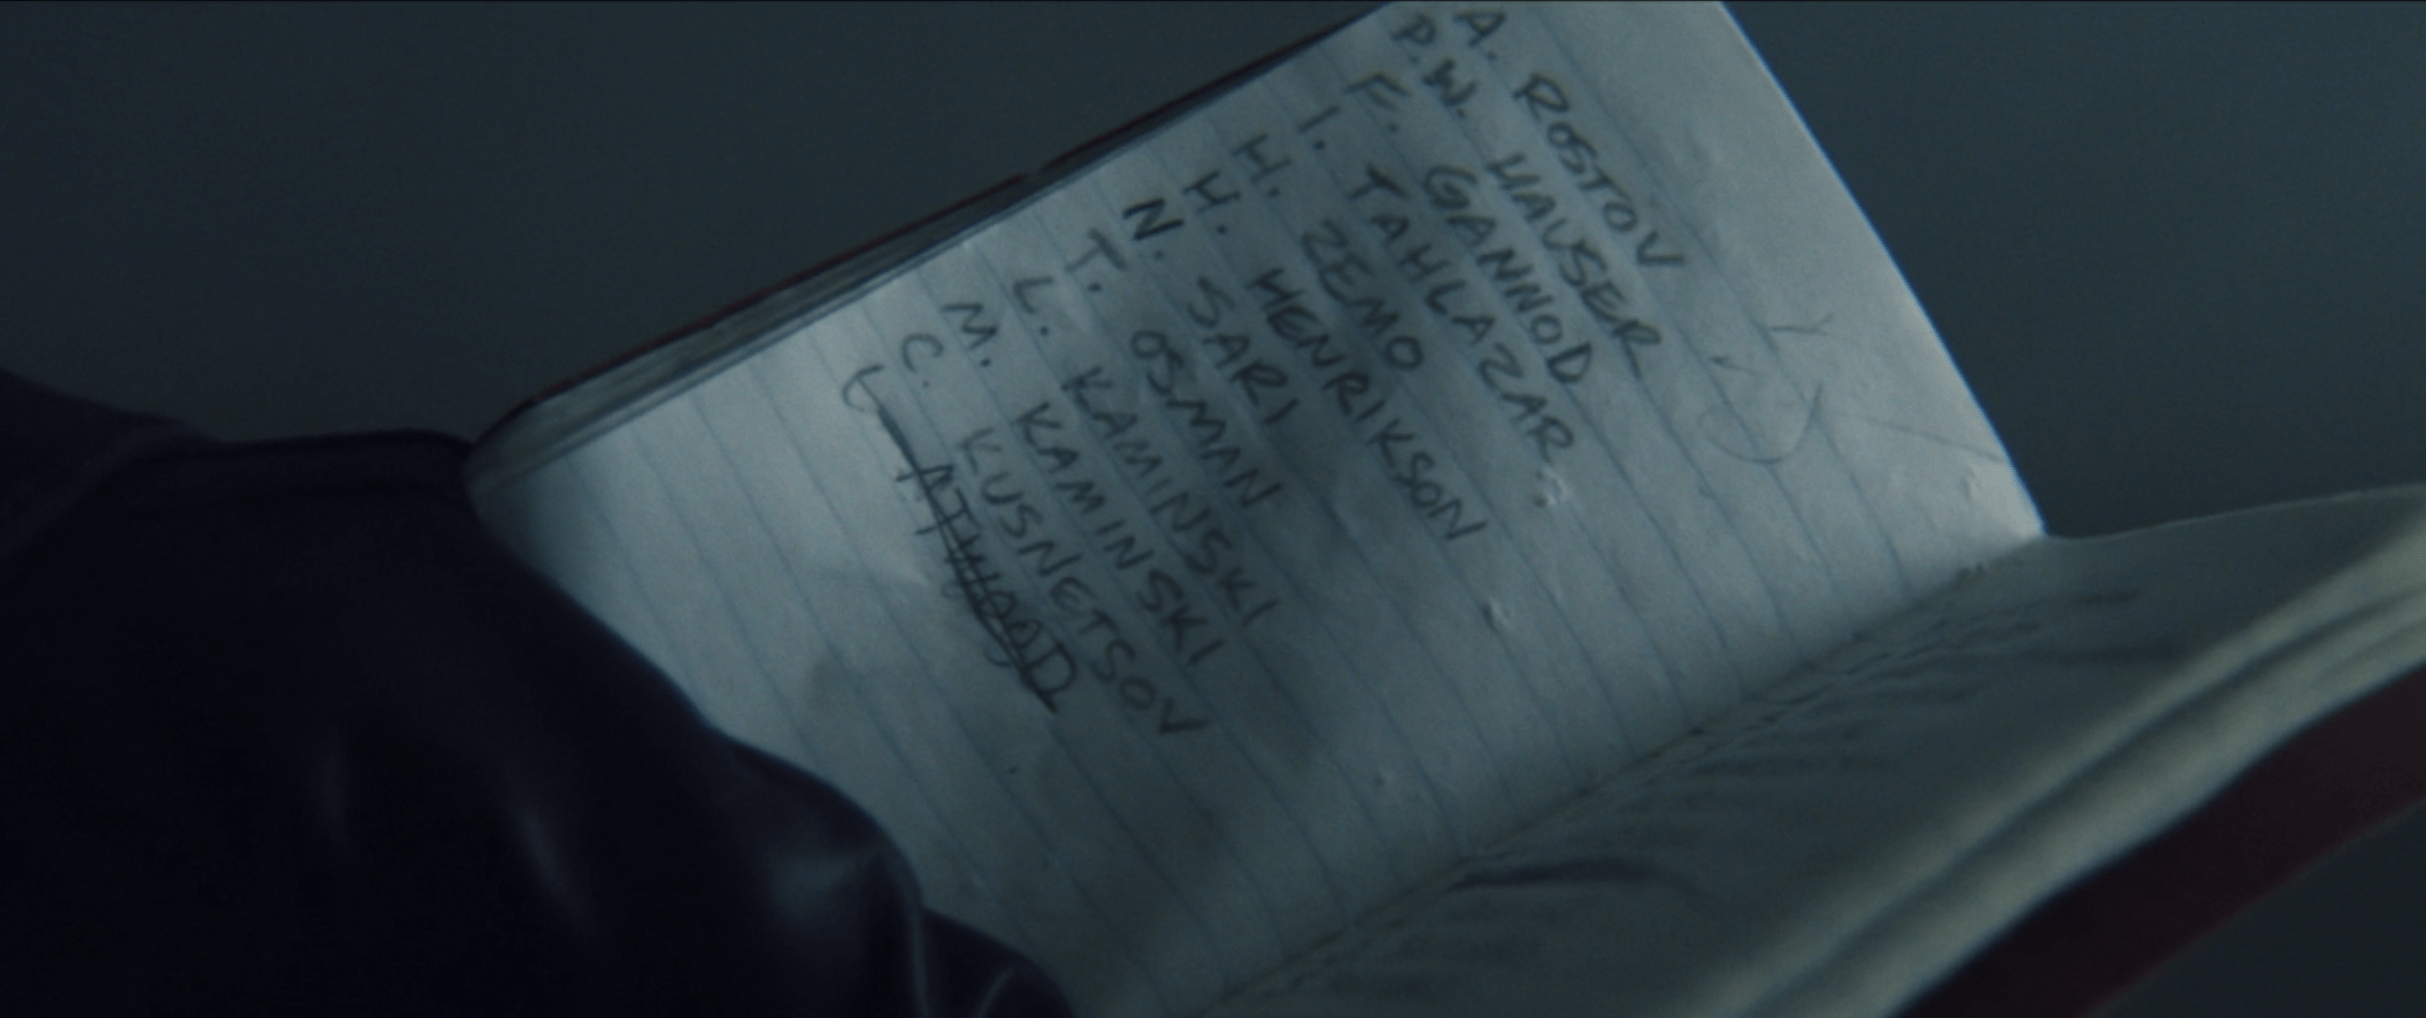 A. ROSTOV
P.W. HAUSER
F. GANNOD
I. TAHLAZAR
H. ZEMO
H. HENRIKSON
N. SARI
T. OSMAN
L. KAMINSKI
M. KAMINSKI
C. KUSNETSOV
L ATWOOD